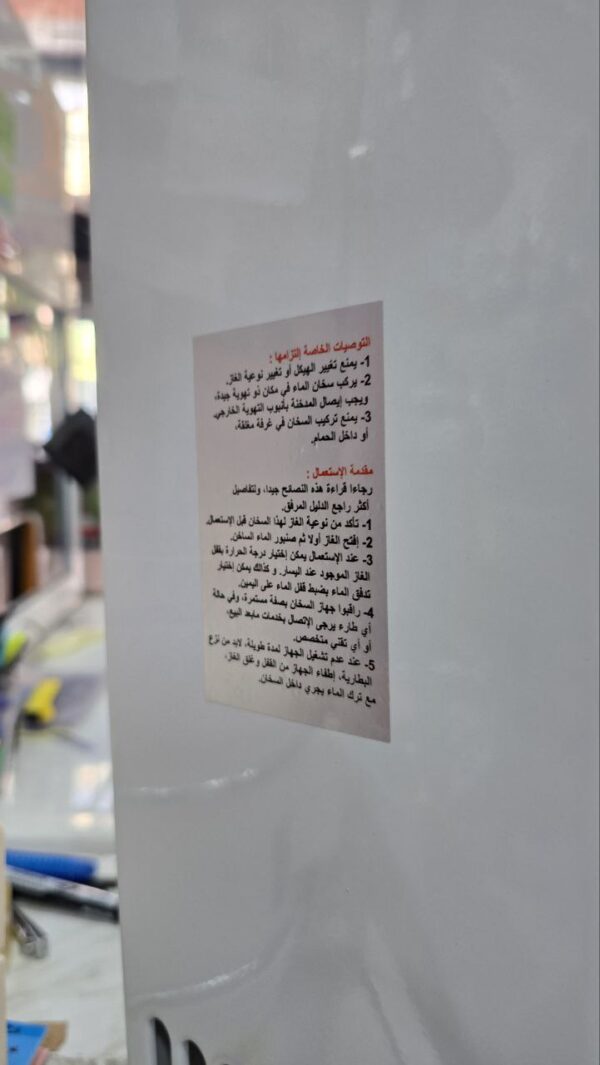 التوصيات الخاصة إلتزامها :
1- يمنع تغيير الهيكل أو تغيير نوعية الغاز.
2- يركب سخان الماء في مكان ذو تهوية جيدة،
ويجب إيصال المدخنة بأنبوب التهوية الخارجي.
3- يمنع تركيب السخان في غرفة مغلقة،
أو داخل الحمام.
مقدمة الإستعمال :
رجاءا قراءة هذه النصائح جيدا، ولتفاصيل
أكثر راجع الدليل المرفق.
1- تأكد من نوعية الغاز لهذا السخان قبل الإستعمال.
2- إفتح الغاز أولا ثم صنبور الماء الساخن.
3- عند الإستعمال يمكن إختيار درجة الحرارة بقفل
الغاز الموجود عند اليسار. و كذالك يمكن إختيار
تدفق الماء بضبط قفل الماء على اليمين.
4- راقبوا جهاز السخان بصفة مستمرة، وفي حالة
أي طارء يرجى الإتصال بخدمات مابعد البيع،
أو أي تقني متخصص.
5- عند عدم تشغيل الجهاز لمدة طويلة، لابد من نزع
البطارية، إطفاء الجهاز من القفل وغلق الغاز،
مع ترك الماء يجري داخل السخان.